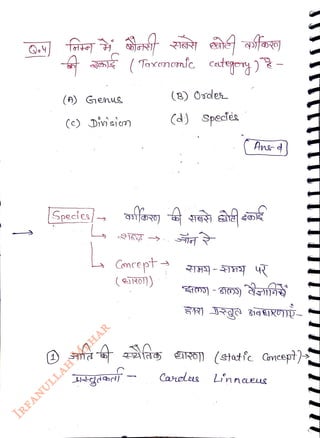 Q.4) निम्न में कौनसी सबसे छोटी वर्गीकरण
की इकाई (Taxonomic category) है -
(A) Genus (B) Order
(C) Division (d) Species
Ans-d
Species → वर्गीकरण की सबसे छोटी इकाई
→ शब्द → जॉन रे
→ Concept → समय-समय पर
(धारणा) अलग-अलग वैज्ञानिकों
द्वारा प्रस्तुत अवधारणाएं-
① जाति की स्थैतिक धारणा (static Concept) →
प्रस्तुतकर्ता - Carolus Linnaeus